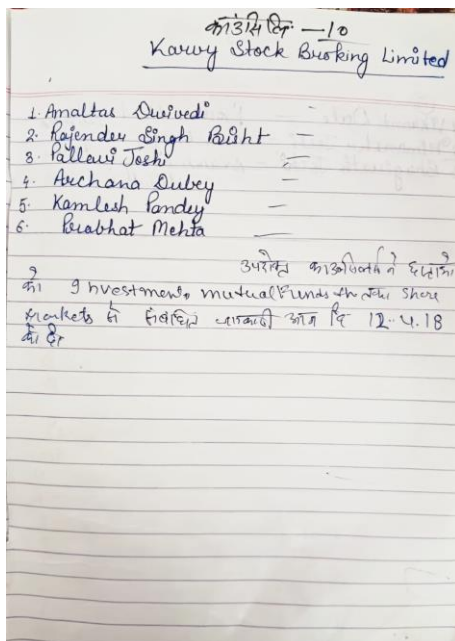 काउंसिलिंग - 10
Karvy Stock Broking Limited
1. Amaltas Dwivedi -
2. Rajender Singh Bisht -
3. Pallavi Joshi -
4. Archana Dubey -
5. Kamlesh Pandey -
6. Prabhat Mehta -
उपरोक्त ने छात्रों
को Investment, mutual Funds तथा Share
markets से संबंधित जानकारी आज दि 12.4.18
को दी